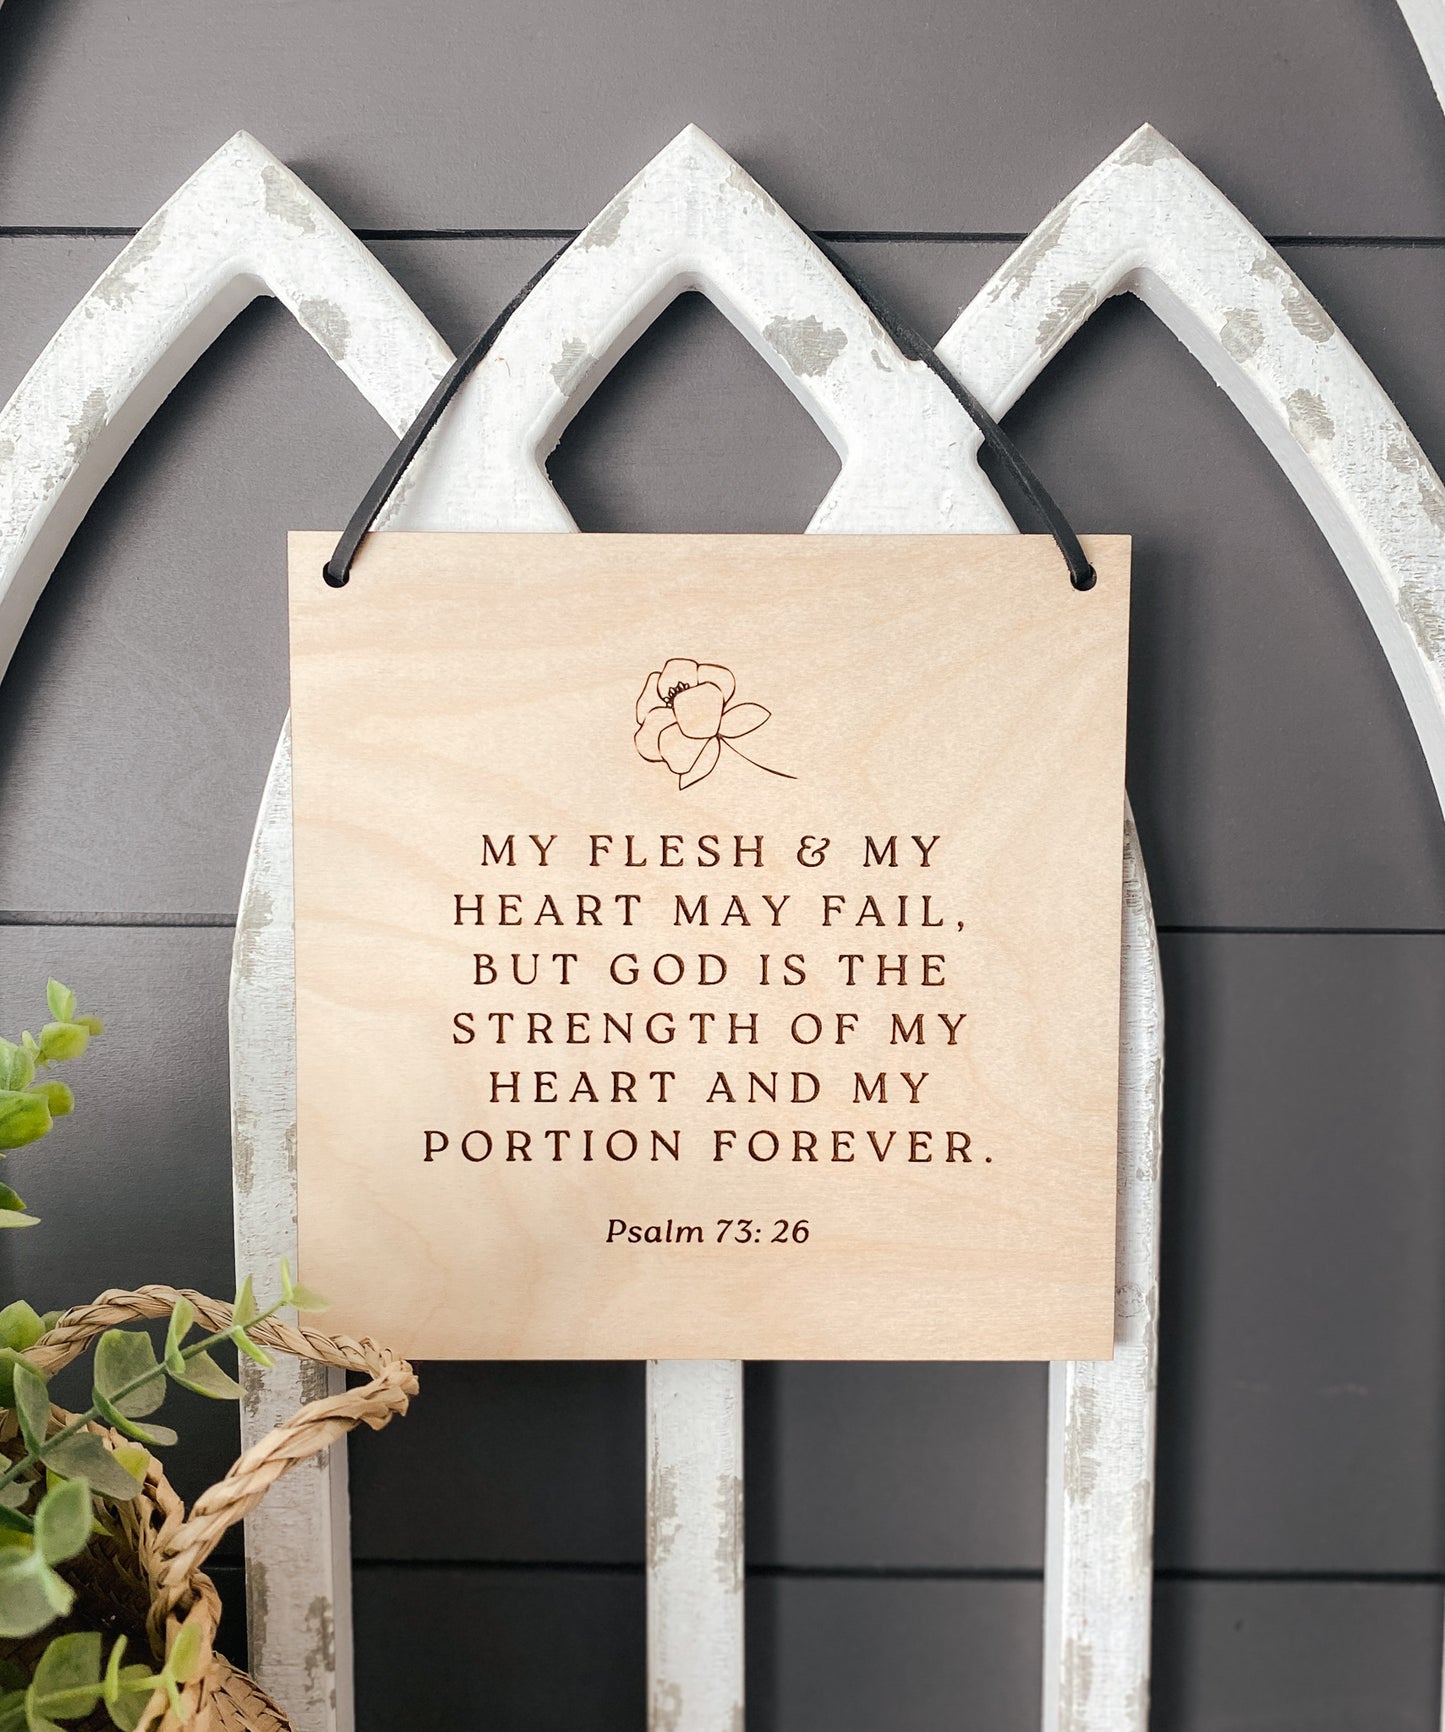 MY FLESH & MY
HEART MAY FAIL,
BUT GOD IS THE
STRENGTH OF MY
HEART AND MY
PORTION FOREVER.
Psalm 73: 26